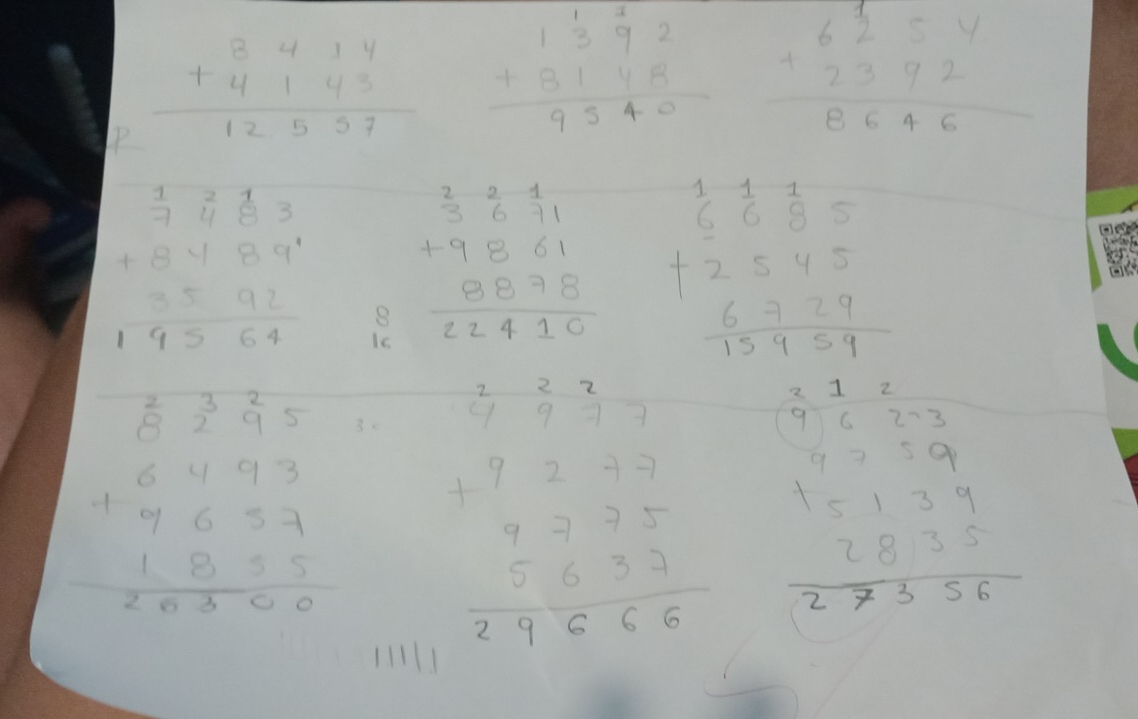 8 4 1 4
+ 4 1 4 3
1 2 5 5 7
1 1
1 3 9 2
+ 8 1 4 8
9 5 4 0
1
6 2 5 4
+ 2 3 9 2
8 6 4 6
1 2 1
7 4 8 3
+ 8 4 8 9
3 5 9 2
1 9 5 6 4
2 2 1
3 6 7 1
+ 9 8 6 1
8 8 7 8
2 2 4 1 0
8
16
1 1 1
6 6 8 5
+ 2 5 4 5
6 7 2 9
1 5 9 5 9
2 3 2
8 2 9 5
6 4 9 3
+ 9 6 5 7
1 8 5 5
2 6 3 0 0
2 2 2
4 9 7 7
+ 9 2 7 7
9 7 7 5
5 6 3 7
2 9 6 6 6
2 1 2
9 6 2 3
9 7 5 9
+ 5 1 3 9
2 8 3 5
2 7 3 5 6